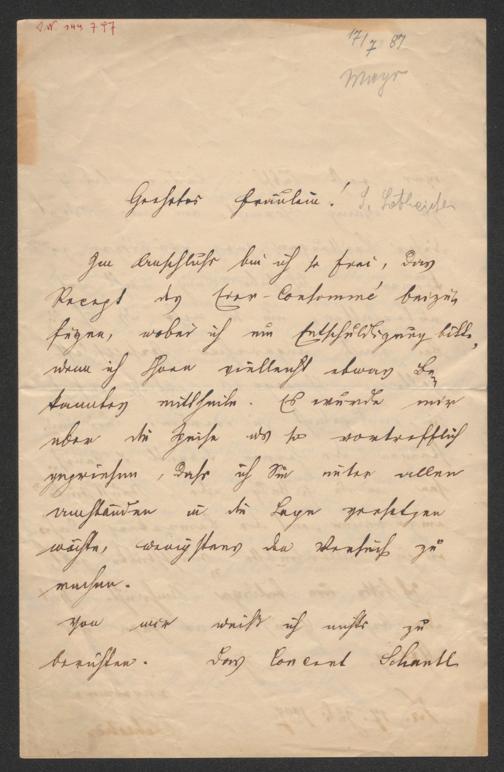 I.N. 144 797
17/7 87
Mayr
Geehrtes Fräulein!
Im Anschluße bin ich so frei, das
Recept des Eier-Consommé beizu
fügen, wobei ich um Entschuldigung bitte,
wenn ich Ihnen vielleicht etwas Be-
kanntes mittheile. Es wurde mir
aber die Speise als so vortrefflich
gepriesen, daß ich Sie unter allen
Umständen in die Lage versetzen
möchte, wenigstens den Versuch zu
machen.
Von mir weiß ich nichts zu
berichten. Das Concert Schantl